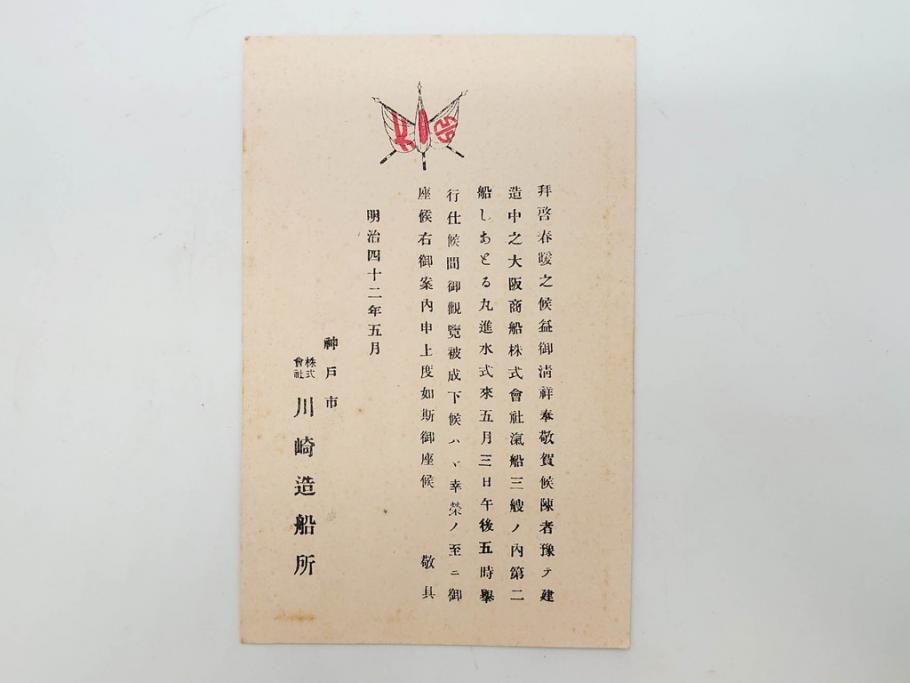 拜啓春暖之候益御淸祥奉敬賀候陳者豫テ建
造中之大阪商船株式會社滊船三艘ノ內第二
船しあとる丸進水式來五月三日午後五時擧
行仕候間御觀覽被成下候ハヽ幸榮ノ至ニ御
座候右御案內申上度如斯御座候　敬具
明治四十二年五月
神戶市
株式會社川崎造船所